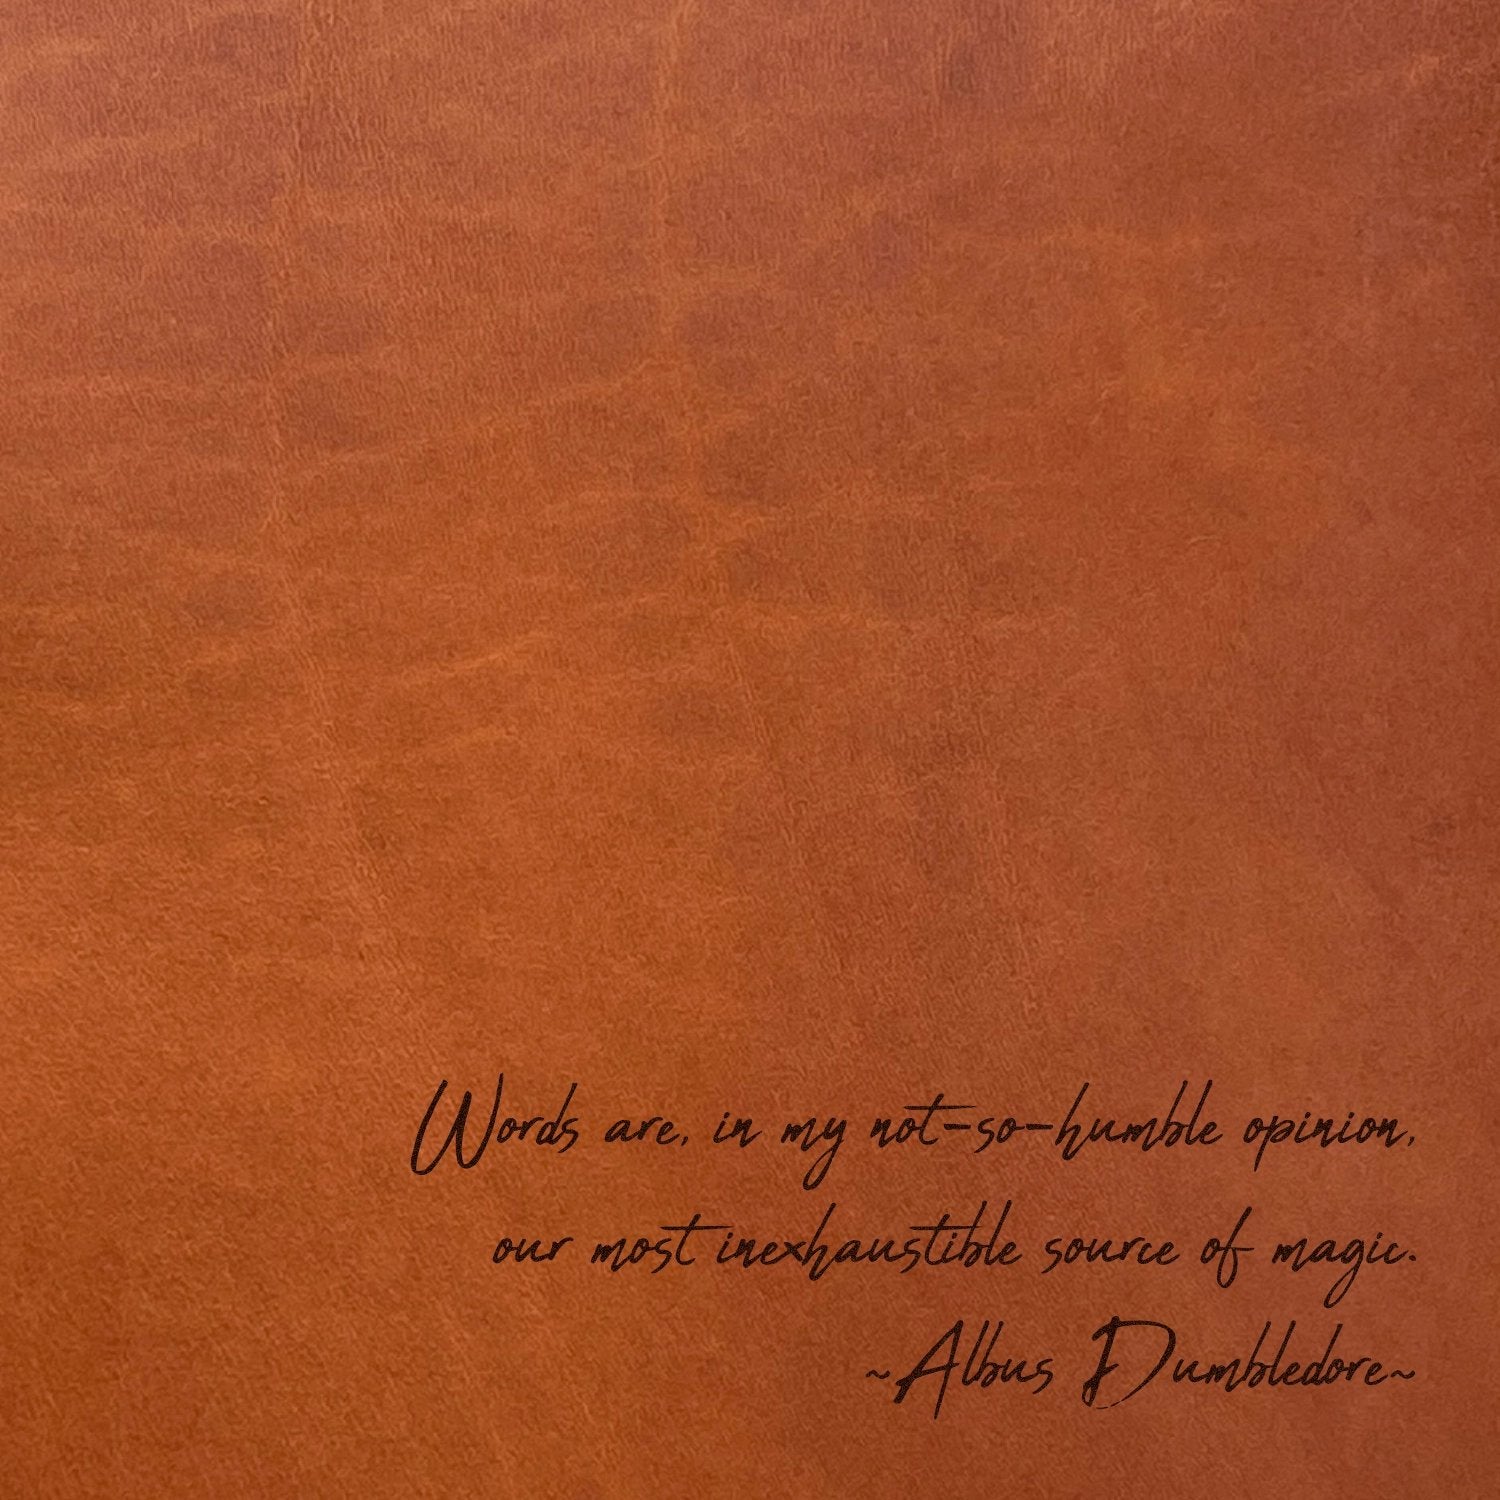 Words are, in my not-so-humble opinion,
our most inexhaustible source of magic.
~Albus Dumbledore~